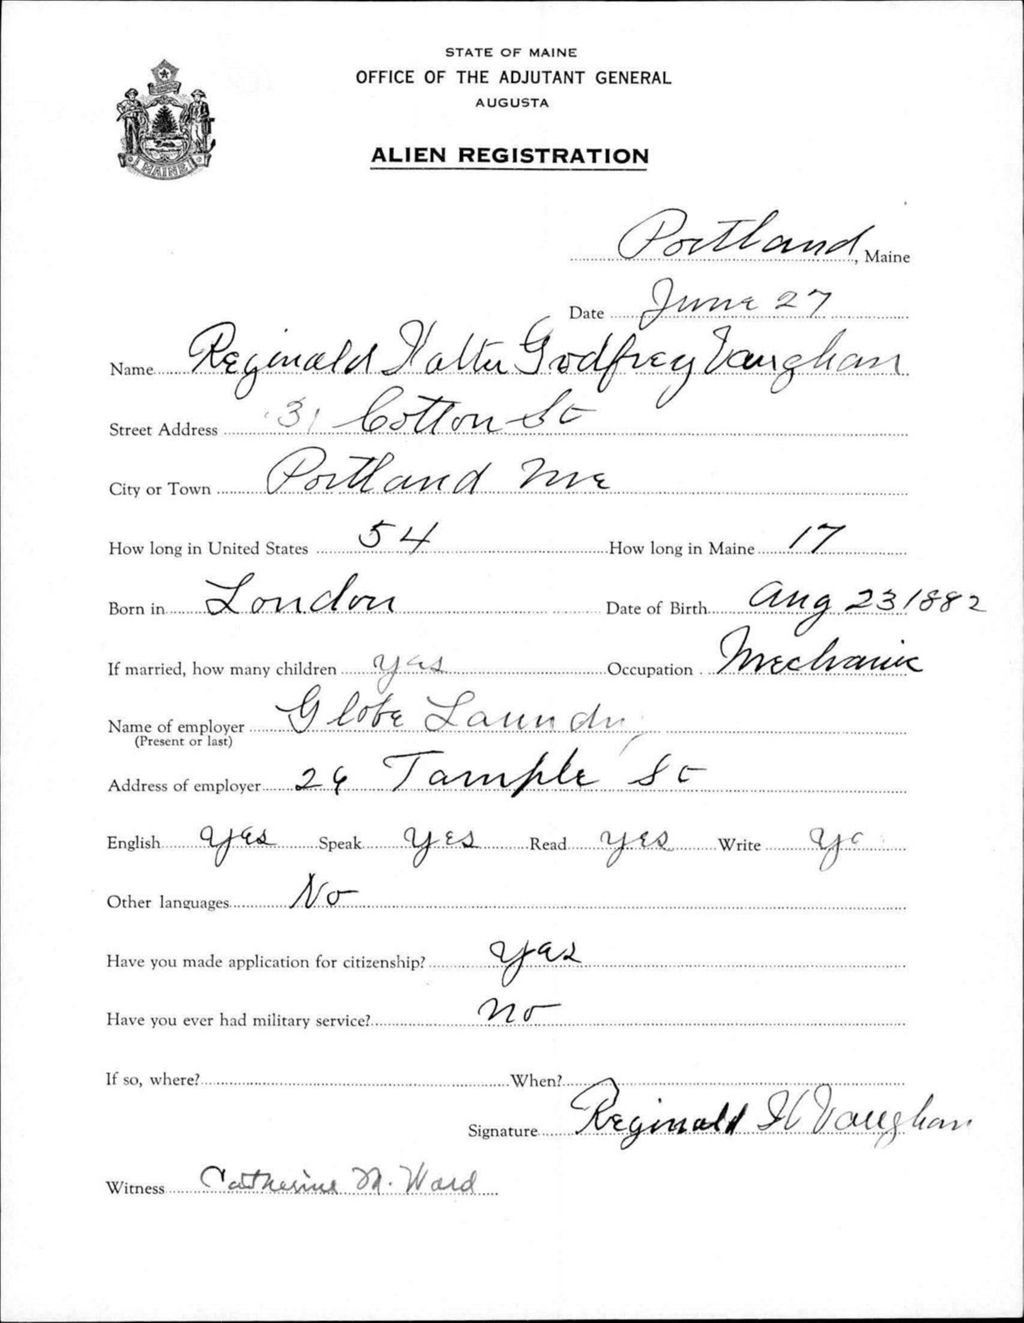 STATE OF MAINE
OFFICE OF THE ADJUTANT GENERAL
AUGUSTA
ALIEN REGISTRATION
MAINE
Portland, Maine
Date June 27
Name Reginald Walter Godfrey Vaughan
Street Address 31 Cotton St
City or Town Portland Me
How long in United States 54 How long in Maine 17
Born in London Date of Birth Aug 23 1882
If married, how many children yes Occupation Mechanic
Name of employer Globe Laundry
(Present or last)
Address of employer 26 Tample St
English yes Speak yes Read yes Write ye
Other languages No
Have you made application for citizenship? yes
Have you ever had military service? no
If so, where? When?
Signature Reginald W Vaughan
Witness Catherine M. Ward